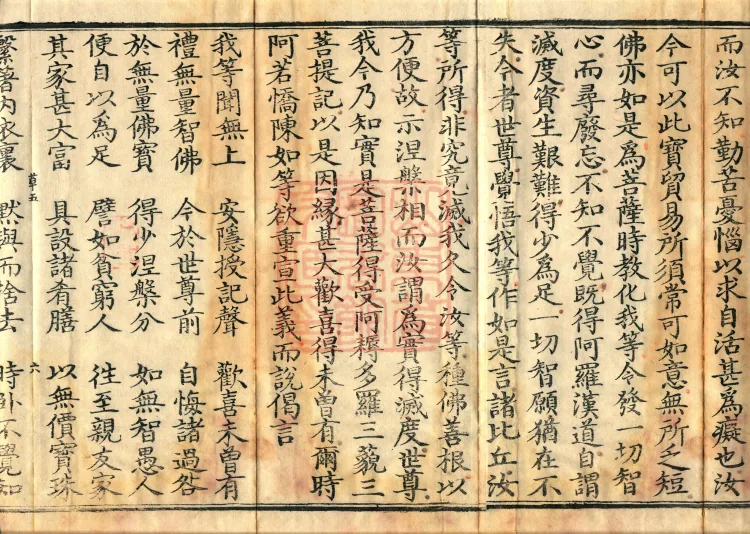 而汝不知勤苦憂惱以求自活甚爲癡也汝
今可以此寶貿易所須常可如意無所乏短
佛亦如是爲菩薩時教化我等令發一切智
心而尋廢忘不知不覺既得阿羅漢道自謂
滅度資生艱難得少爲足一切智願猶在不
失今者世尊覺悟我等作如是言諸比丘汝
等所得非究竟滅我久令汝等種佛善根以
方便故示涅槃相而汝謂爲實得滅度世尊
我今乃知實是菩薩得受阿耨多羅三藐三
菩提記以是因緣甚大歡喜得未曾有爾時
阿若憍陳如等欲重宣此義而說偈言
我等聞無上 安隱授記聲 歡喜未曾有
禮無量智佛 今於世尊前 自悔諸過咎
於無量佛寶 得少涅槃分 如無智愚人
便自以爲足 譬如貧窮人 往至親友家
其家甚大富 具設諸肴膳 以無價寶珠
草五 六
繫著內衣裏 默與而捨去 時臥不覺知